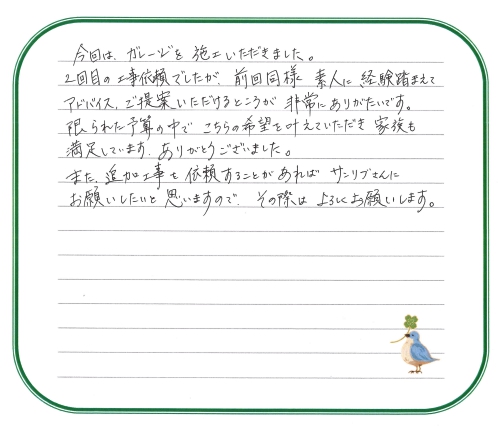 今回は、ガレージを施工いただきました。
2回目の工事依頼でしたが、前回同様 素人に経験踏まえて
アドバイス、ご提案いただけるところが非常にありがたいです。
限られた予算の中で こちらの希望を叶えていただき 家族も
満足しています。ありがとうございました。
また、追加工事を依頼することがあれば サンリブさんに
お願いしたいと思いますので、その際は よろしくお願いします。